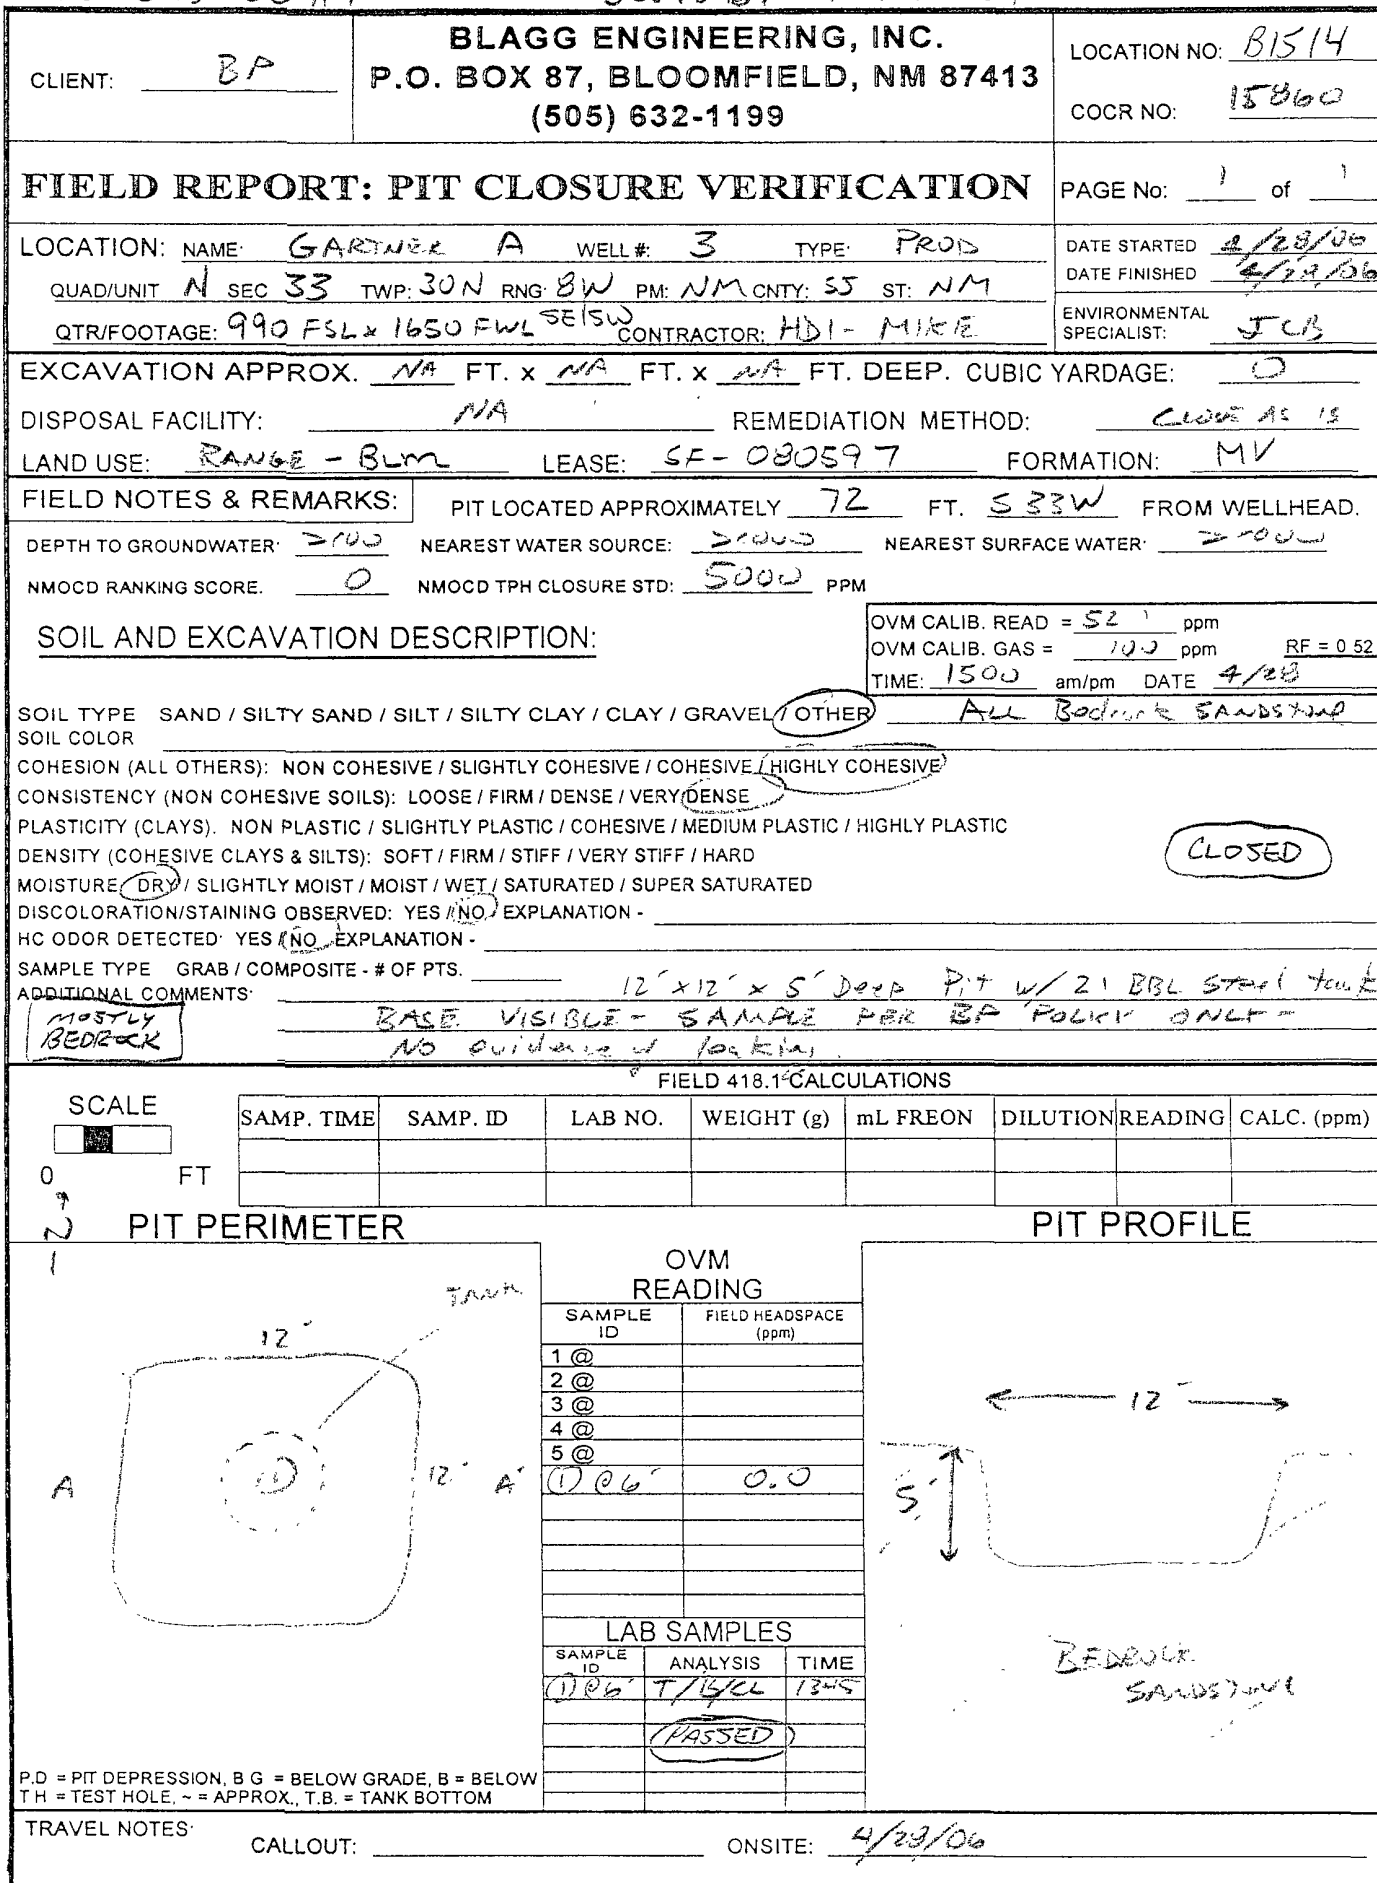 BLAGG ENGINEERING, INC.
P.O. BOX 87, BLOOMFIELD, NM 87413
(505) 632-1199
CLIENT: BP
LOCATION NO: B1514
COCR NO: 15860
FIELD REPORT: PIT CLOSURE VERIFICATION
PAGE No: 1 of 1
LOCATION: NAME: GARTNER A WELL #: 3 TYPE: PROD
DATE STARTED 4/28/06
DATE FINISHED 4/28/06
QUAD/UNIT N SEC 33 TWP: 30N RNG: 8W PM: NM CNTY: SJ ST: NM
QTR/FOOTAGE: 990 FSL x 1650 FWL SE/SW CONTRACTOR: HDI - MIKE
ENVIRONMENTAL SPECIALIST: JCB
EXCAVATION APPROX. NA FT. x NA FT. x NA FT. DEEP. CUBIC YARDAGE: 0
DISPOSAL FACILITY: NA REMEDIATION METHOD: CLOSE AS IS
LAND USE: RANGE - BLM LEASE: SF-080597 FORMATION: MV
FIELD NOTES & REMARKS: PIT LOCATED APPROXIMATELY 72 FT. S33W FROM WELLHEAD.
DEPTH TO GROUNDWATER: >100 NEAREST WATER SOURCE: >1000 NEAREST SURFACE WATER: >1000
NMOCD RANKING SCORE. 0 NMOCD TPH CLOSURE STD: 5000 PPM
SOIL AND EXCAVATION DESCRIPTION:
OVM CALIB. READ = 52.1 ppm
OVM CALIB. GAS = 100 ppm RF = 0 52
TIME: 1500 am/pm DATE 4/28
SOIL TYPE SAND / SILTY SAND / SILT / SILTY CLAY / CLAY / GRAVEL / OTHER ALL Bedrock SANDSTONE
SOIL COLOR
COHESION (ALL OTHERS): NON COHESIVE / SLIGHTLY COHESIVE / COHESIVE / HIGHLY COHESIVE
CONSISTENCY (NON COHESIVE SOILS): LOOSE / FIRM / DENSE / VERY DENSE
PLASTICITY (CLAYS). NON PLASTIC / SLIGHTLY PLASTIC / COHESIVE / MEDIUM PLASTIC / HIGHLY PLASTIC
DENSITY (COHESIVE CLAYS & SILTS): SOFT / FIRM / STIFF / VERY STIFF / HARD
CLOSED
MOISTURE DRY / SLIGHTLY MOIST / MOIST / WET / SATURATED / SUPER SATURATED
DISCOLORATION/STAINING OBSERVED: YES / NO EXPLANATION -
HC ODOR DETECTED: YES / NO EXPLANATION -
SAMPLE TYPE GRAB / COMPOSITE - # OF PTS.
ADDITIONAL COMMENTS: 12' x 12' x 5' Deep Pit w/ 21 BBL Steel tank
MOSTLY BEDROCK
BASE VISIBLE - SAMPLE PER BP POLICY ONLY -
No evidence of leaking.
FIELD 418.1 CALCULATIONS
SCALE
0 FT
SAMP. TIME SAMP. ID LAB NO. WEIGHT (g) mL FREON DILUTION READING CALC. (ppm)
N
PIT PERIMETER
PIT PROFILE
TANK
12'
12'
A A'
1
OVM READING
SAMPLE ID FIELD HEADSPACE (ppm)
1 @
2 @
3 @
4 @
5 @
(1) @ 6' 0.0
LAB SAMPLES
SAMPLE ID ANALYSIS TIME
(1) @ 6' T/B/CL 1345
PASSED
12'
5'
BEDROCK
SANDSTONE
P.D = PIT DEPRESSION, B G = BELOW GRADE, B = BELOW
T H = TEST HOLE, ~ = APPROX., T.B. = TANK BOTTOM
TRAVEL NOTES: CALLOUT: ONSITE: 4/28/06